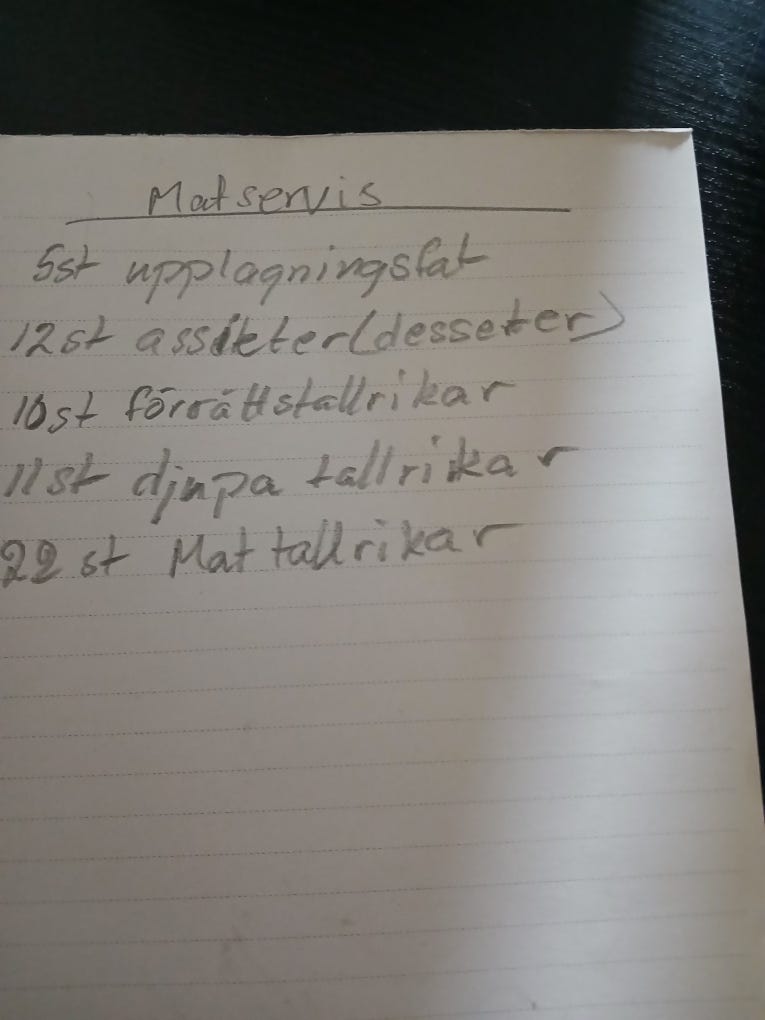 Matservis
5st upplagningsfat
12st assikter(desseter)
10st förrättstallrikar
11st djupa tallrikar
22 st Mat tallrikar